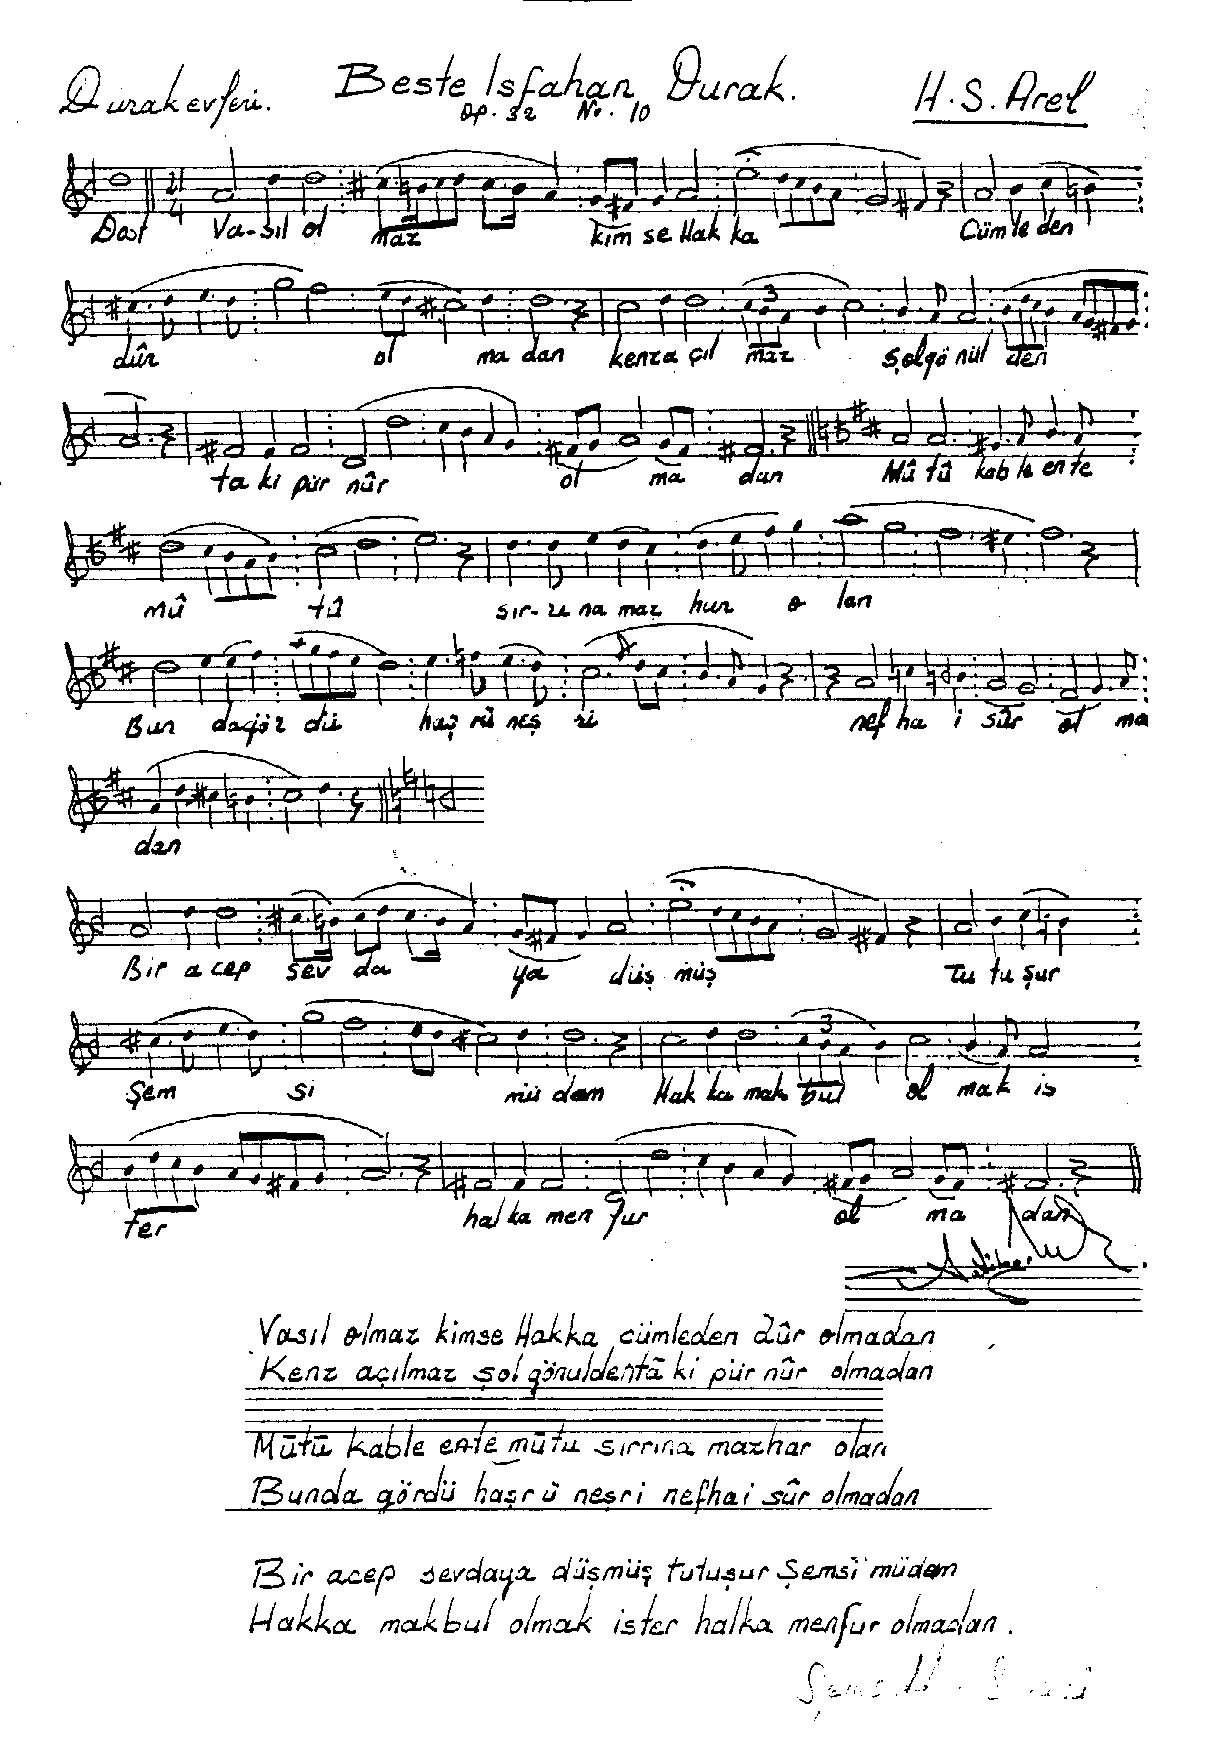 Durak evferi.
Beste Isfahan Durak.
Op. 32 No. 10
H. S. Arel
21
4
Dost Va-sıl ol maz kim se Hak ka Cüm le den
dûr ol ma dan kenz a çıl maz şol gö nül den
3
ta ki pür nûr ol ma dan Mû tû kab le en te
mû tû sır-rı na maz har o lan
Bun da gör dü haş rü neş ri nef ha i sûr ol ma
dan
Bir a cep sev da ya düş müş Tu tu şur
Şem si mü dam Hak ka mak bul ol mak is
3
ter hal ka men fur ol ma dan
Vasıl olmaz kimse Hakka cümleden dûr olmadan
Kenz açılmaz şol gönülden tâ ki pür nûr olmadan
Mūtū kable ente mūtu sırrına mazhar olan
Bunda gördü haşr ü neşri nefhai sûr olmadan
Bir acep sevdaya düşmüş tutuşur Şemsî müdam
Hakka makbul olmak ister halka menfur olmadan.